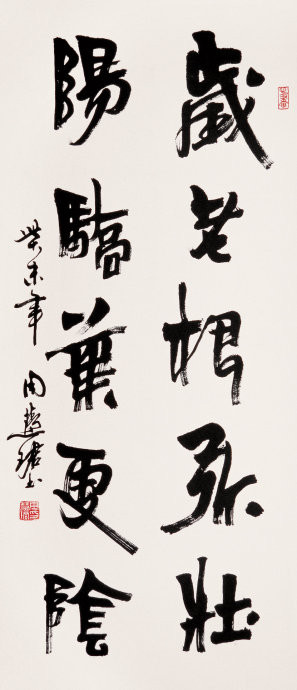 歲老根弥壯
陽驕葉更陰
癸未年 周慧珺书